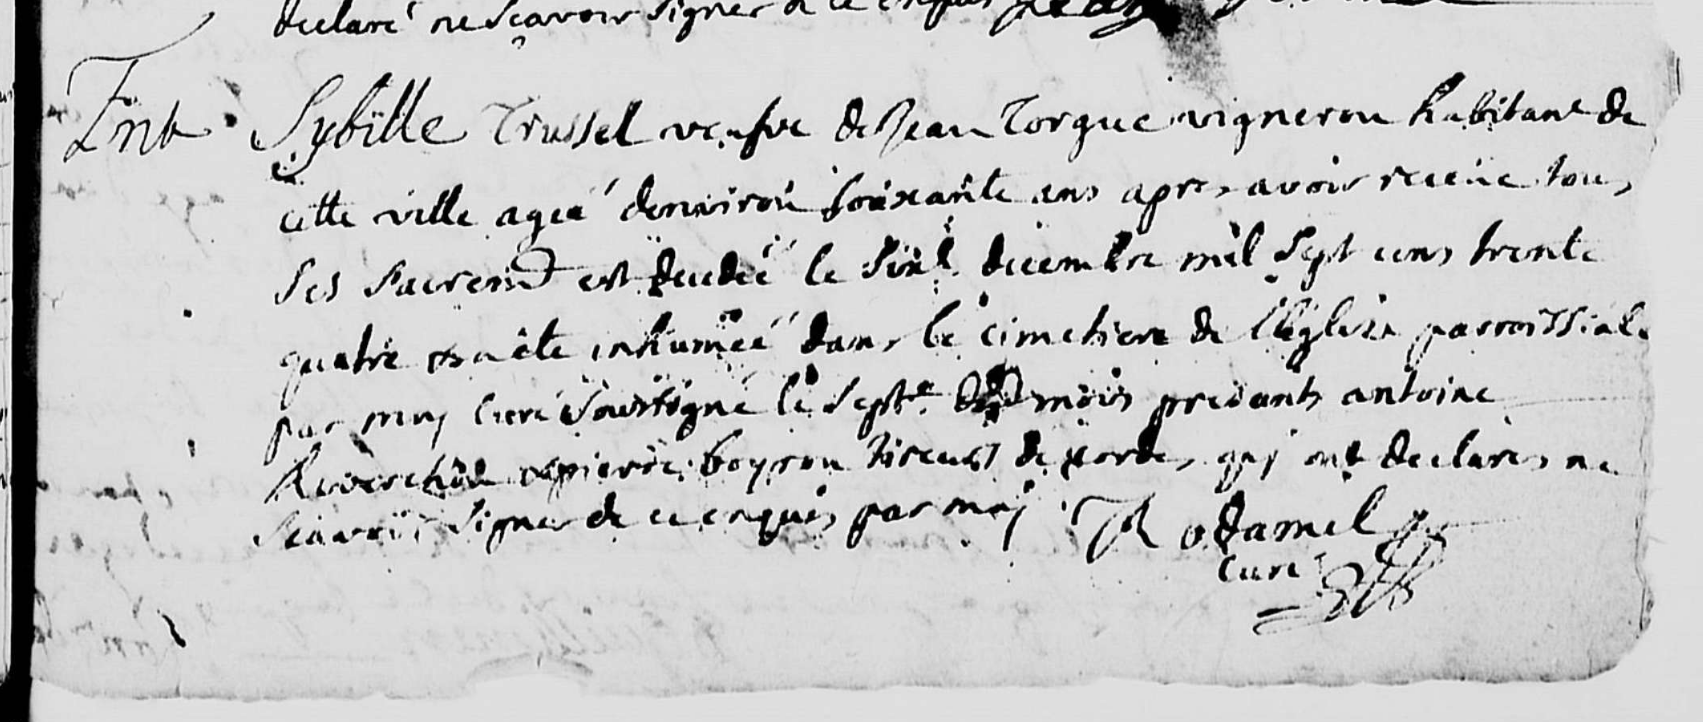 declaré ne sçavoir signer de ce enquis
Ent Sybille Trussel veufve de Jean Torgue vigneron habitant de
cette ville ageé denviron soixante ans apres avoir receüe tous
ses sacremts est decedeé le sixe decembre mil sept cens trente
quatre et a ète inhumeé dans le cimetiere de l'église parroissiale
par moy curé soussigné le septe mois presants antoine
Reverchon et pierre boyron tireurs de corde, qui ont declarés ne
sçavoir signer de ce enquis par moy Rodamel
Curé